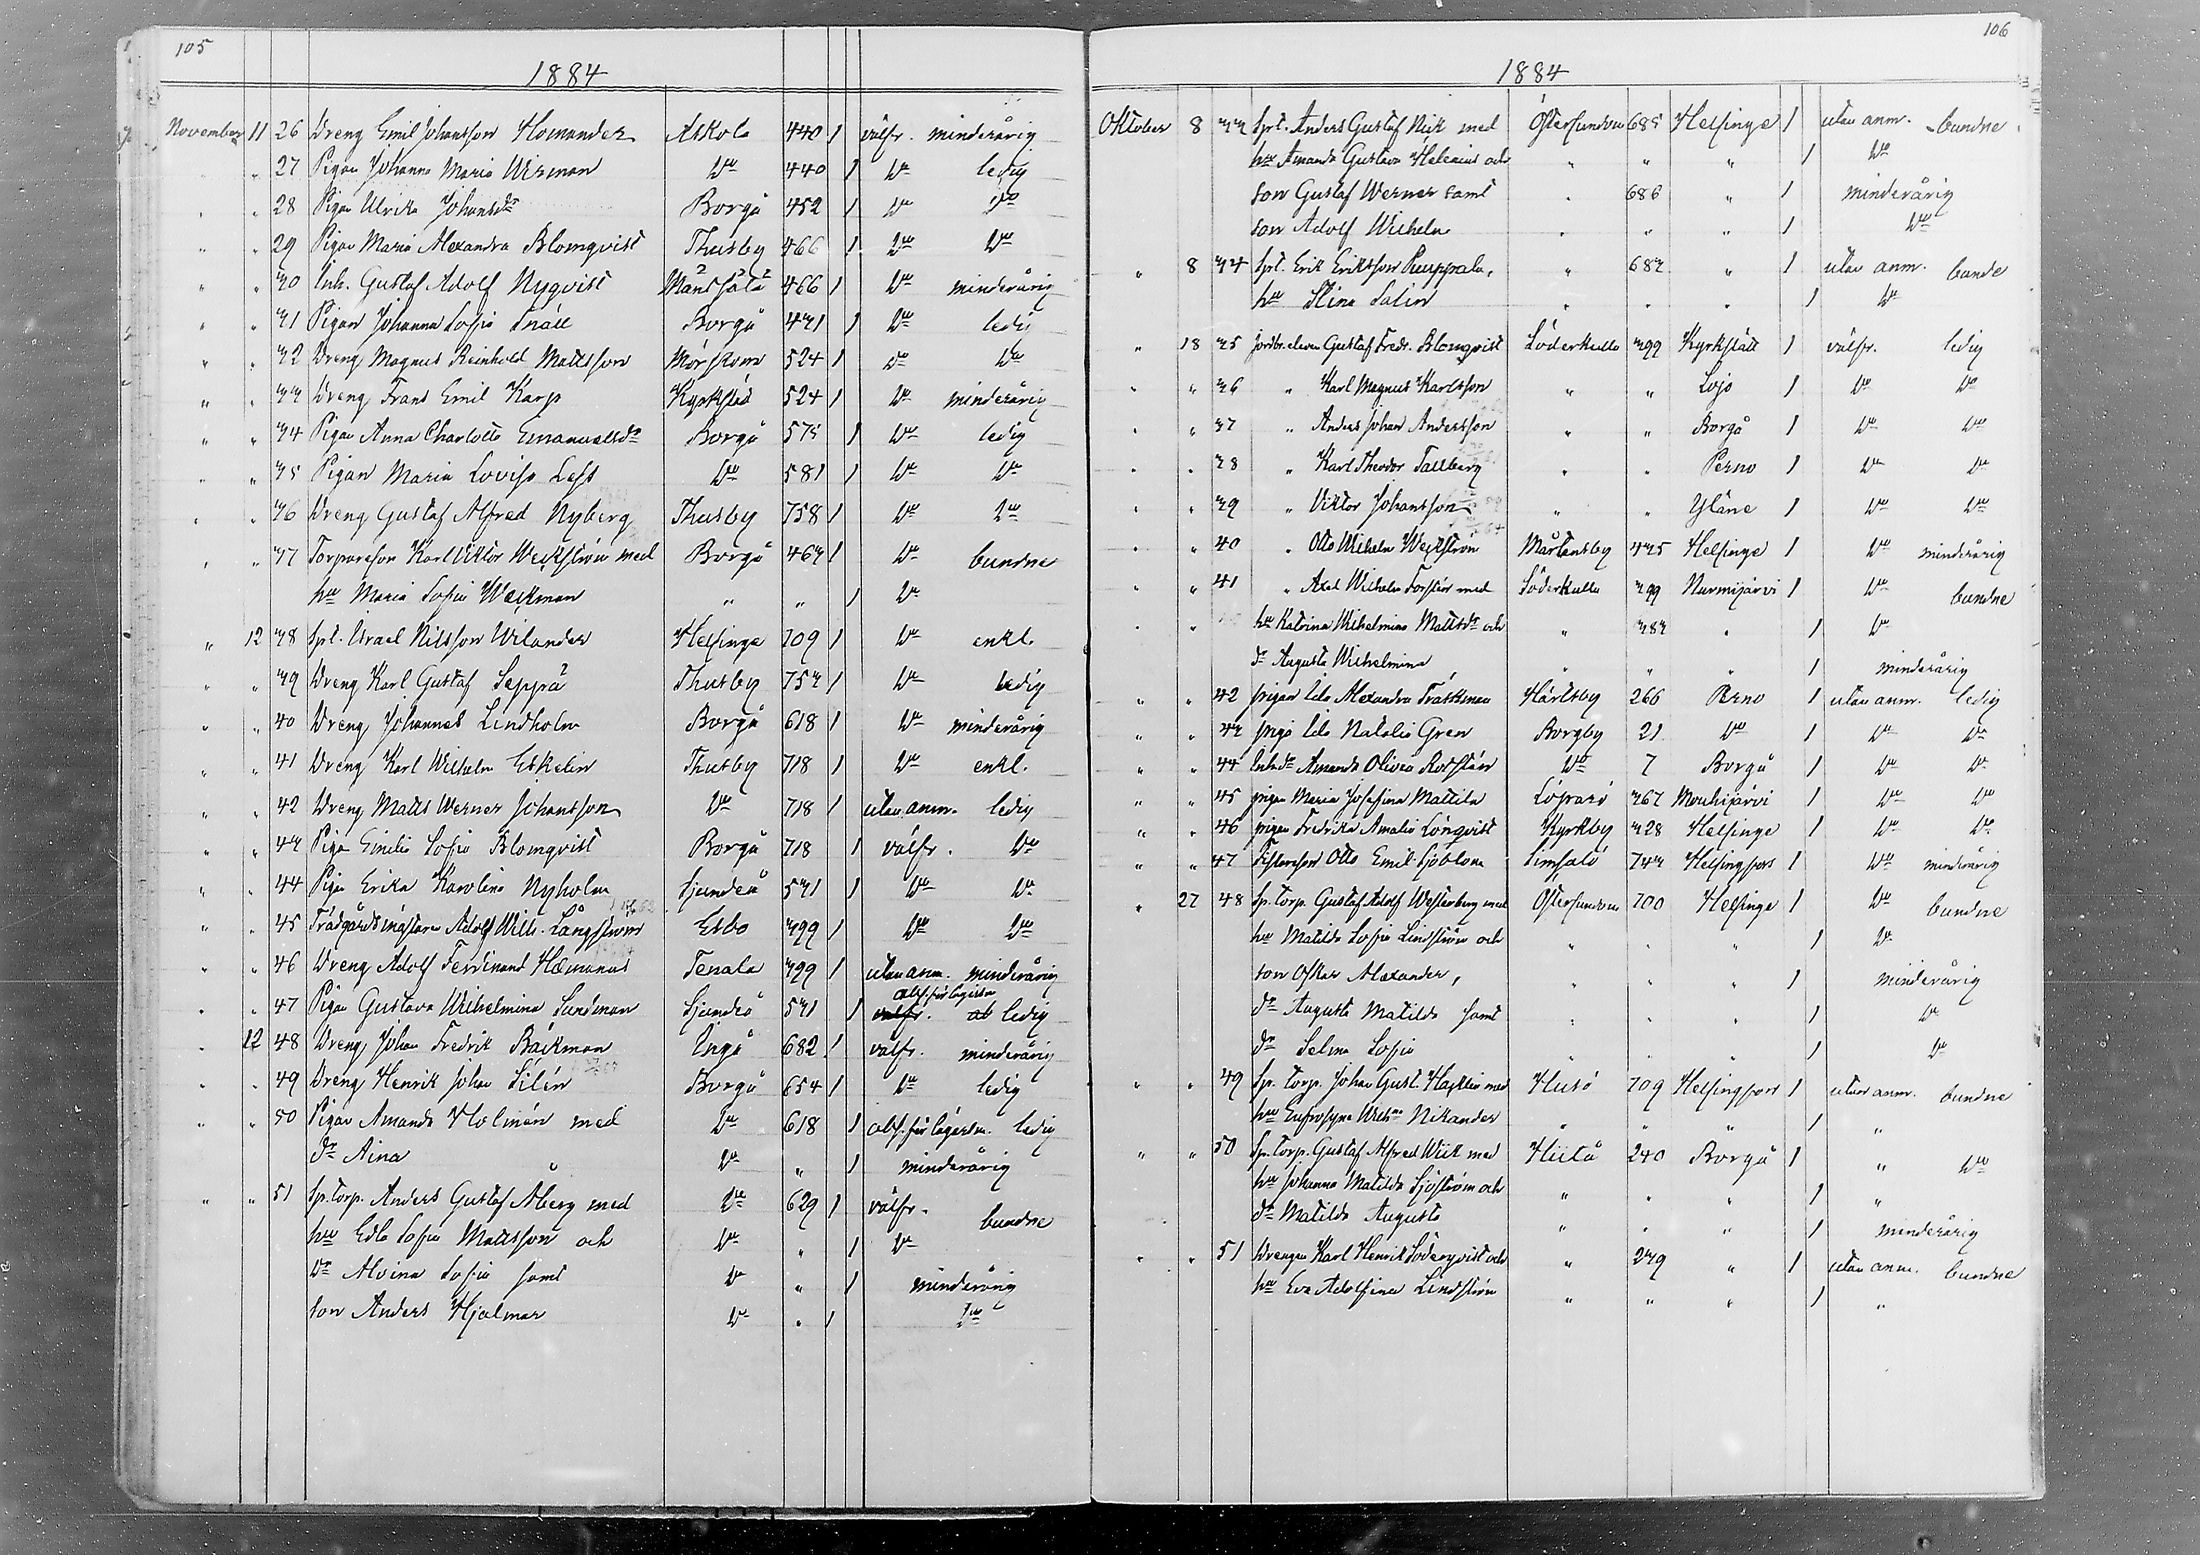 105
1884
November 11 26 Dreng Emil Johansson Homander Askola 440 1 välfr. minderårig
" 27 Pigan Johanna Maria Wirman Do 440 1 Do ledig
" " 28 Pigan Ulrika Johansdr Borgå 452 1 Do Do
" " 29 Pigan Maria Alexandra Blomqvist Thusby 466 1 Do Do
" " 30 Inh. Gustaf Adolf Nyqvist Mäntsälä 466 1 Do minderårig
" " 31 Pigan Johanna Sofia Snäll Borgå 431 1 Do ledig
" " 32 Dreng Magnus Reinhold Mattsson Mörskom 524 1 Do Do
" " 33 Dreng Frans Emil Karp Kyrkslät 524 1 Do minderårig
" " 34 Pigan Anna Charlotta Emanuelsdr Borgå 573 1 Do ledig
" " 35 Pigan Maria Lovisa Do 581 1 Do Do
" " 36 Dreng Gustaf Alfred Nyberg Thusby 758 1 Do Do
" " 37 Torpareson Karl Viktor Weckström med Borgå 463 1 Do bundne
hu Maria Sofia Weckman " " 1 Do
" 12 38 Spt. Israel Nilsson Wilander Helsinge 709 1 Do enkl.
" " 39 Dreng Karl Gustaf Seppä Thusby 753 1 Do ledig
" " 40 Dreng Johannes Lindholm Borgå 618 1 Do minderårig
" " 41 Dreng Karl Wilhelm Eskelin Thusby 718 1 Do enkl.
" " 42 Dreng Matts Werner Johansson Do 718 1 utan anm. ledig
" " 43 Piga Emilia Sofia Blomqvist Borgå 718 1 välfr. Do
" " 44 Piga Erika Karolina Nyholm Sjundeå 531 1 Do Do
" " 45 Trädgårdsmästaren Adolf Wilh. Långström Esbo 399 1 Do Do
" " 46 Dreng Adolf Ferdinand Hemanus Tenala 399 1 utan anm. minderårig
" " 47 Pigan Gustava Wilhelmina Sundman Sjundeå 531 1 välfr. abs. för lägersm. ledig
" 12 48 Dreng Johan Fredrik Bäckman Ingå 682 1 välfr. minderårig
" " 49 Dreng Henrik Johan Silén Borgå 654 1 Do ledig
" " 50 Pigan Amanda Holmén med Do 618 1 abs. för lägersm. ledig
dr Aina Do " 1 minderårig
" " 51 Sp. torp. Anders Gustaf Åberg med Do 629 1 välfr. bundne
hu Edla Sofia Mattsson och Do " 1 Do
dr Alvina Sofia samt Do " 1 minderårig
son Anders Hjalmar Do " 1 Do
106
1884
Oktober 8 33 Spt. Anders Gustaf Nick med Östersundom 685 Helsinge 1 utan anm. bundne
hu Amanda Gustava Helenius och " " " 1 Do
son Gustaf Werner samt " 686 " 1 minderårig
son Adolf Wilhelm " " " 1 Do
" 8 34 Spt. Erik Eriksson Puuppala, " 683 " 1 utan anm. bunde
hu Stina Salin " " " 1 Do
" 18 35 Jordbr. eleven Gustaf Fredr. Blomqvist Söderkulla 399 Kyrkslätt 1 välfr. ledig
" " 36 " Karl Magnus Karlsson " " Lojo 1 Do Do
" " 37 " Anders Johan Andersson " " Borgå 1 Do Do
" " 38 " Karl Theodor Tallberg " " Perno 1 Do Do
" " 39 " Viktor Johansson " " Yläne 1 Do Do
" " 40 " Otto Wilhelm Weckström Mårtensby 435 Helsinge 1 Do minderårig
" " 41 " Axel Wilhelm Forsström med Söderkulla 399 Nurmijärvi 1 Do bundne
" " hu Katrina Wilhelmina Mattsdr och " 383 " 1 Do
dr Augusta Wilhelmina " " " 1 minderårig
" " 42 pigan Ida Alexandra Träskman Härtsby 266 Perno 1 utan anm. ledig
" " 43 piga Ida Natalia Gren Borgby 21 Do 1 Do Do
" " 44 Inhdr Amanda Olivia Rosstén Do 7 Borgå 1 Do Do
" " 45 pigan Maria Josefina Mattila Löparö 367 Mouhijärvi 1 Do Do
" " 46 pigan Fredrika Amalia Lönqvist Kyrkby 328 Helsinge 1 Do Do
" " 47 Otto Emil Sjöblom Simsalö 743 Helsingfors 1 Do minderårig
" 27 48 Sp. torp. Gustaf Adolf Westerberg med Östersundom 700 Helsinge 1 Do bundne
hu Matilda Sofia Lindström och " " " 1 Do
son Oskar Alexander, " " " 1 minderårig
dr Augusta Matilda samt " " " 1 Do
dr Selma Sofia " " " 1 Do
" " 49 Sp. torp. Johan Gust. Hagelin med Husö 709 Helsingfors 1 utan anm. bundne
hu Eufrosyna Wilhna Nikander " " " 1 "
" " 50 Sp. torp. Gustaf Alfred Wiik med Hiitå 240 Borgå 1 " Do
hu Johanna Matilda Sjöström och " " " 1 "
dr Matilda Augusta " " " 1 minderårig
" " 51 Drengen Karl Henrik Söderqvist och " 239 " 1 utan anm. bundne
hu Eva Adolfina Lindström " " " 1 "